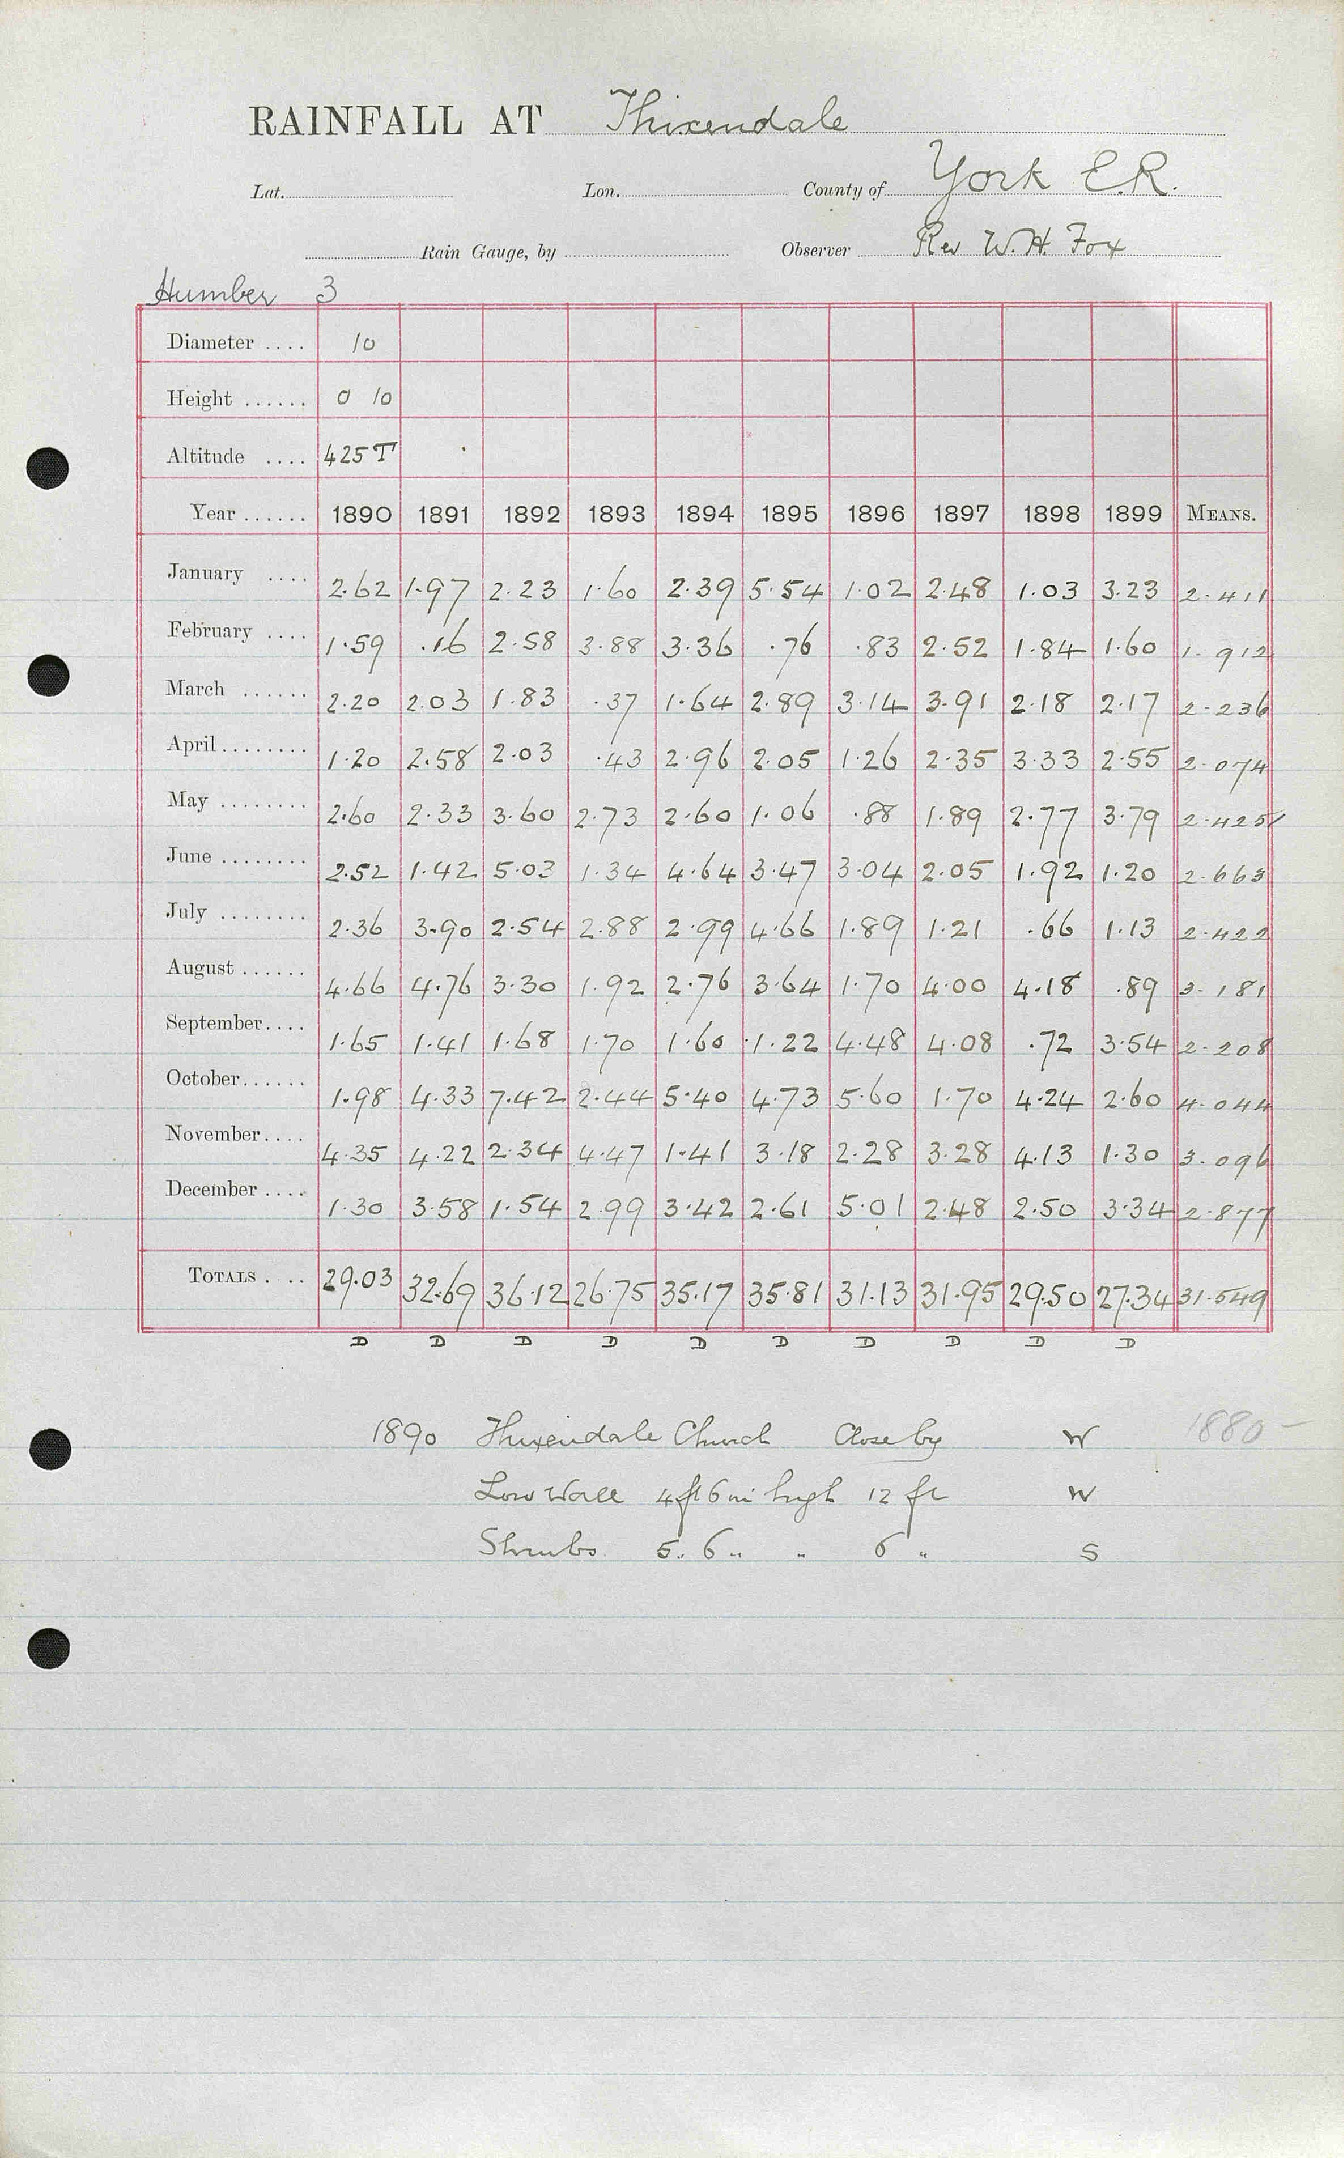 RAINFALL AT Thixendale
Lat. Lon. County of York E.R.
Rain Gauge, by Observer Rev W. H. Fox
Humber 3
Diameter .... 10
Height ...... 0 10
Altitude .... 425 T
Year ...... 1890 1891 1892 1893 1894 1895 1896 1897 1898 1899 MEANS.
January .... 2.62 1.97 2.23 1.60 2.39 5.54 1.02 2.48 1.03 3.23 2.411
February .... 1.59 .16 2.58 3.88 3.36 .76 .83 2.52 1.84 1.60 1.912
March ...... 2.20 2.03 1.83 .37 1.64 2.89 3.14 3.91 2.18 2.17 2.236
April ........ 1.20 2.58 2.03 .43 2.96 2.05 1.26 2.35 3.33 2.55 2.074
May ........ 2.60 2.33 3.60 2.73 2.60 1.06 .88 1.89 2.77 3.79 2.425
June ........ 2.52 1.42 5.03 1.34 4.64 3.47 3.04 2.05 1.92 1.20 2.663
July ........ 2.36 3.90 2.54 2.88 2.99 4.66 1.89 1.21 .66 1.13 2.422
August ...... 4.66 4.76 3.30 1.92 2.76 3.64 1.70 4.00 4.18 .89 3.181
September.... 1.65 1.41 1.68 1.70 1.60 1.22 4.48 4.08 .72 3.54 2.208
October...... 1.98 4.33 7.42 2.44 5.40 4.73 5.60 1.70 4.24 2.60 4.044
November.... 4.35 4.22 2.34 4.47 1.41 3.18 2.28 3.28 4.13 1.30 3.096
December .... 1.30 3.58 1.54 2.99 3.42 2.61 5.01 2.48 2.50 3.34 2.877
TOTALS . .. 29.03 32.69 36.12 26.75 35.17 35.81 31.13 31.95 29.50 27.34 31.549
D D D D D D D D D D
1890 Thixendale Church Close by W 1880 –
Low Wall 4 ft 6 in high 12 ft W
Shrubs 5 .. 6 " " 6 " S